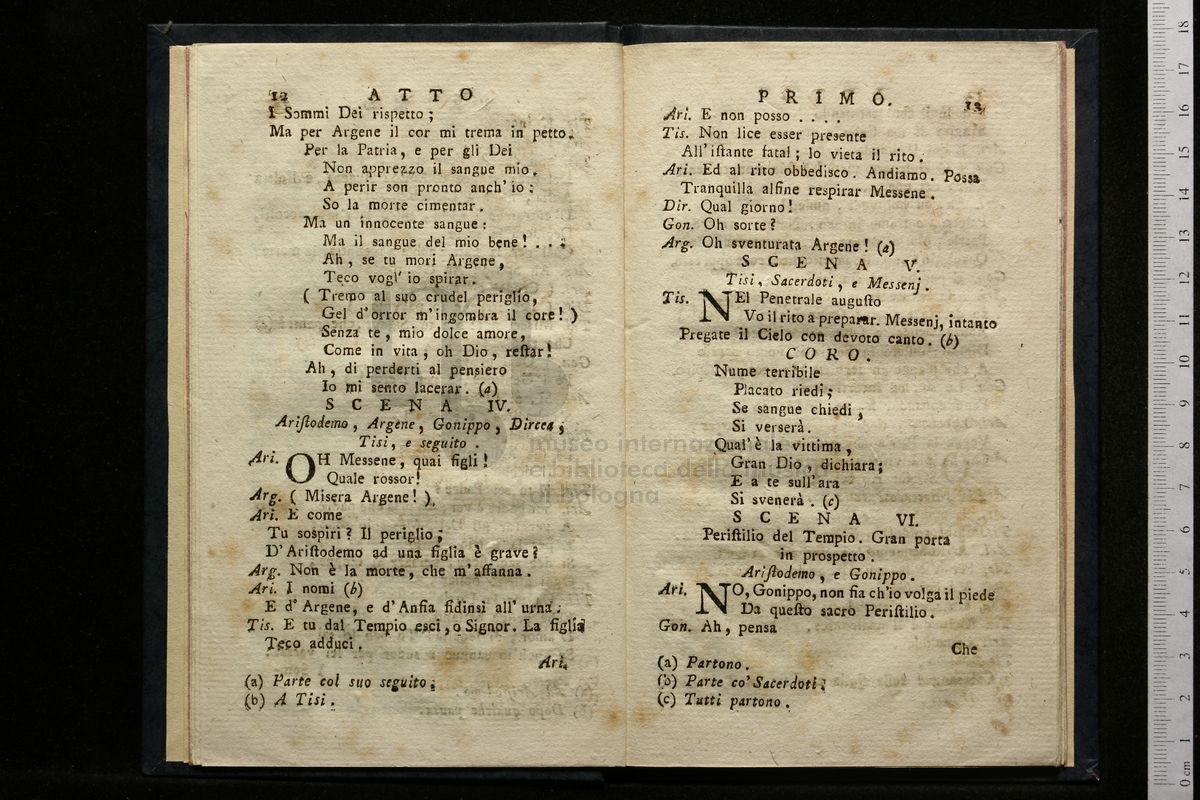 12 ATTO
I Sommi Dei rispetto;
Ma per Argene il cor mi trema in petto.
Per la Patria, e per gli Dei
Non apprezzo il sangue mio.
A perir son pronto anch' io:
So la morte cimentar.
Ma un innocente sangue:
Ma il sangue del mio bene! . . .
Ah, se tu mori Argene,
Teco vogl' io spirar.
( Tremo al suo crudel periglio,
Gel d'orror m'ingombra il core! )
Senza te, mio dolce amore,
Come in vita, oh Dio, reſtar!
Ah, di perderti al pensiero
Io mi sento lacerar. (a)
SCENA IV.
Ariſtodemo, Argene, Gonippo, Dircea,
Tisi, e seguito.
Ari. OH Messene, quai figli!
Quale rossor!
Arg. ( Misera Argene! )
Ari. E come
Tu sospiri? Il periglio;
D'Ariſtodemo ad una figlia è grave?
Arg. Non è la morte, che m'affanna.
Ari. I nomi (b)
E d' Argene, e d'Anfia fidinsi all' urna:
Tis. E tu dal Tempio esci, o Signor. La figlia
Teco adduci.
Ari.
(a) Parte col suo seguito;
(b) A Tisi.
PRIMO. 13
Ari. E non posso . . . .
Tis. Non lice esser presente
All'iſtante fatal; lo vieta il rito.
Ari. Ed al rito obbedisco. Andiamo. Possa
Tranquilla alfine respirar Messene.
Dir. Qual giorno!
Gon. Oh sorte?
Arg. Oh sventurata Argene! (a)
SCENA V.
Tisi, Sacerdoti, e Messenj.
Tis. NEl Penetrale auguſto
Vo il rito a preparar. Messenj, intanto
Pregate il Cielo con devoto canto. (b)
CORO.
Nume terribile
Placato riedi;
Se sangue chiedi,
Si verserà.
Qual'è la vittima,
Gran Dio, dichiara;
E a te sull'ara
Si svenerà. (c)
SCENA VI.
Periſtilio del Tempio. Gran porta
in prospetto.
Ariſtodemo, e Gonippo.
Ari. NO, Gonippo, non fia ch'io volga il piede
Da queſto sacro Periſtilio.
Gon. Ah, pensa
Che
(a) Partono.
(b) Parte co' Sacerdoti;
(c) Tutti partono.
museo internazionale
e biblioteca della musica
di bologna
0 cm 1 2 3 4 5 6 7 8 9 10 11 12 13 14 15 16 17 18